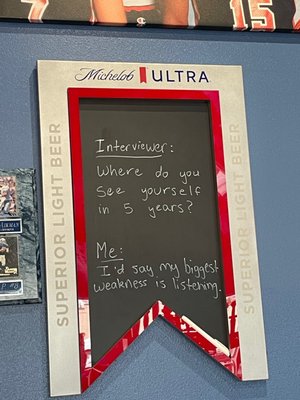 BEER
Michelob ULTRA
SUPERIOR LIGHT BEER
Interviewer:
Where do you
see yourself
in 5 years?
Me:
I'd say my biggest
weakness is listening.
SUPERIOR LIGHT BEER